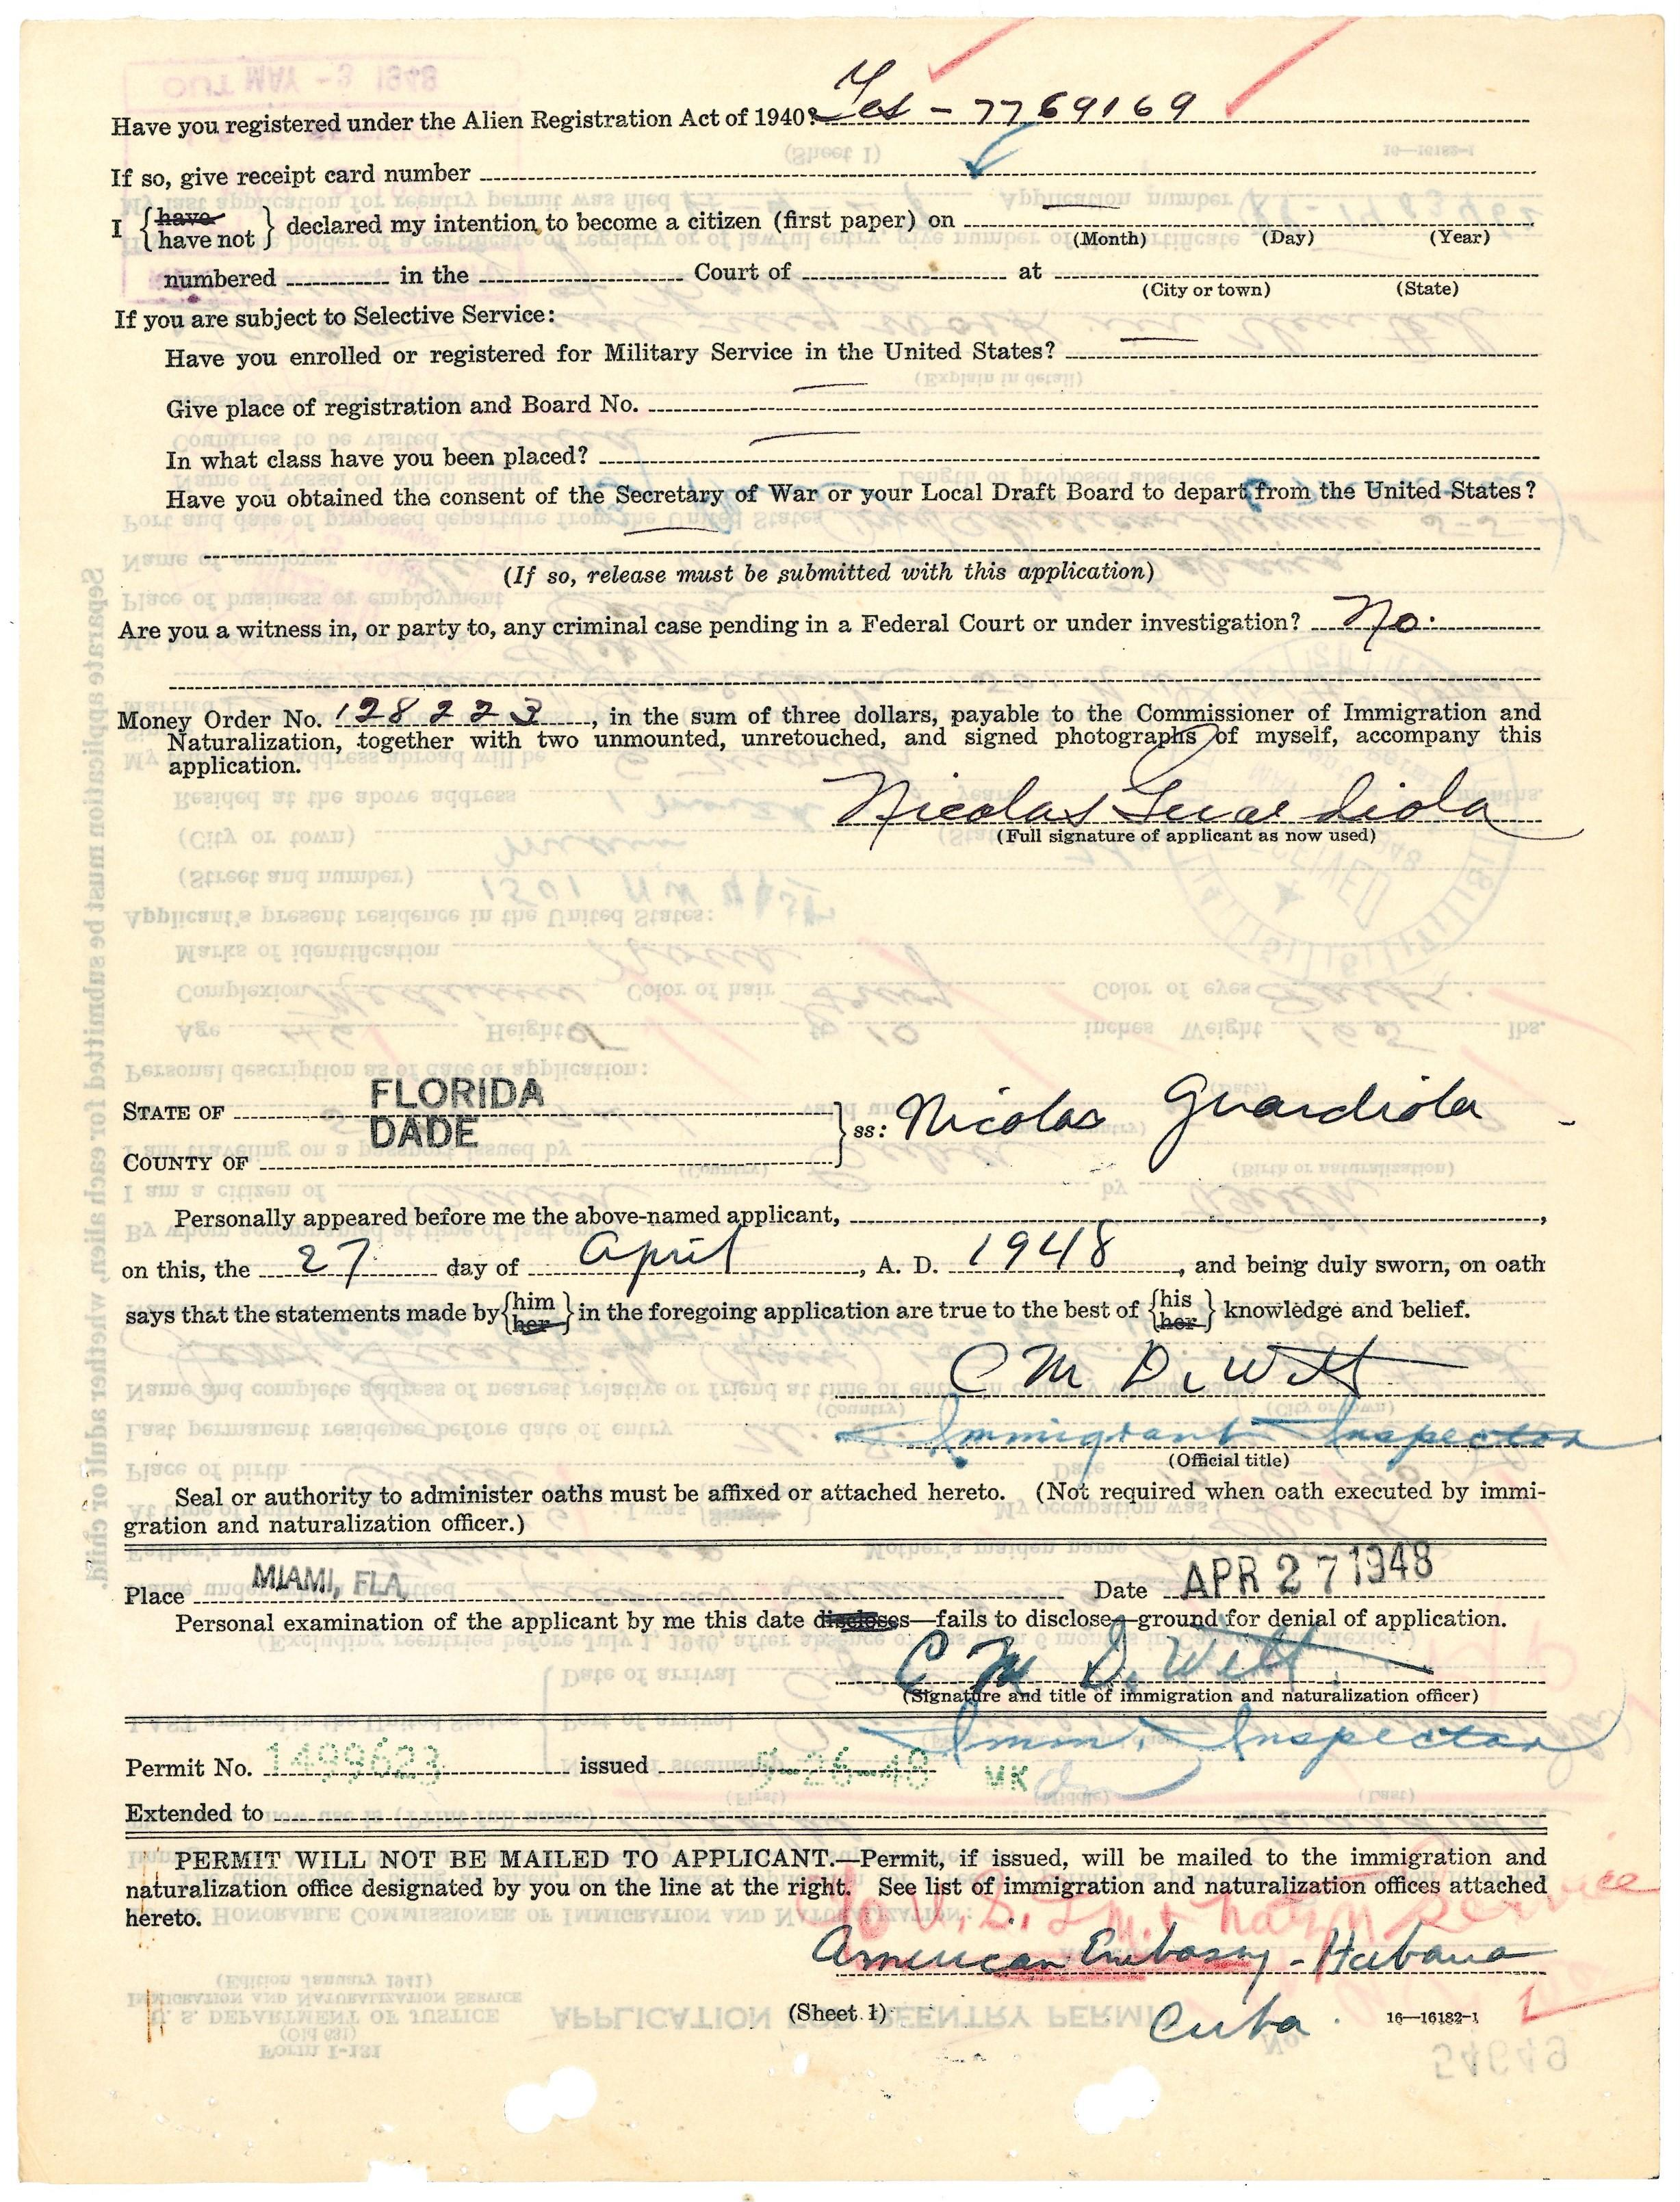 Have you registered under the Alien Registration Act of 1940? Yes - 7769169
If so, give receipt card number
I {have / have not} declared my intention to become a citizen (first paper) on
(Month) (Day) (Year)
numbered in the Court of at
(City or town) (State)
If you are subject to Selective Service:
Have you enrolled or registered for Military Service in the United States?
Give place of registration and Board No.
In what class have you been placed?
Have you obtained the consent of the Secretary of War or your Local Draft Board to depart from the United States?
(If so, release must be submitted with this application)
Are you a witness in, or party to, any criminal case pending in a Federal Court or under investigation? No.
Money Order No. 128223, in the sum of three dollars, payable to the Commissioner of Immigration and
Naturalization, together with two unmounted, unretouched, and signed photographs of myself, accompany this
application.
Nicolas Guardiola
(Full signature of applicant as now used)
STATE OF FLORIDA
DADE
ss: Nicolas Guardiola
COUNTY OF
Personally appeared before me the above-named applicant,
on this, the 27 day of April, A. D. 1948, and being duly sworn, on oath
says that the statements made by {him / her} in the foregoing application are true to the best of {his / her} knowledge and belief.
C M DeWitt
Immigrant Inspector
(Official title)
Seal or authority to administer oaths must be affixed or attached hereto. (Not required when oath executed by immi-
gration and naturalization officer.)
Place MIAMI, FLA. Date APR 27 1948
Personal examination of the applicant by me this date discloses—fails to disclose—ground for denial of application.
C M DeWitt
(Signature and title of immigration and naturalization officer)
Imm. Inspector
Permit No. 1499623 issued 5-26-48 MK
Extended to
PERMIT WILL NOT BE MAILED TO APPLICANT.—Permit, if issued, will be mailed to the immigration and
naturalization office designated by you on the line at the right. See list of immigration and naturalization offices attached
hereto.
% U.S. Im. & Natzn Service
American Embassy - Habana
Cuba.
(Sheet 1)
16—16182-1